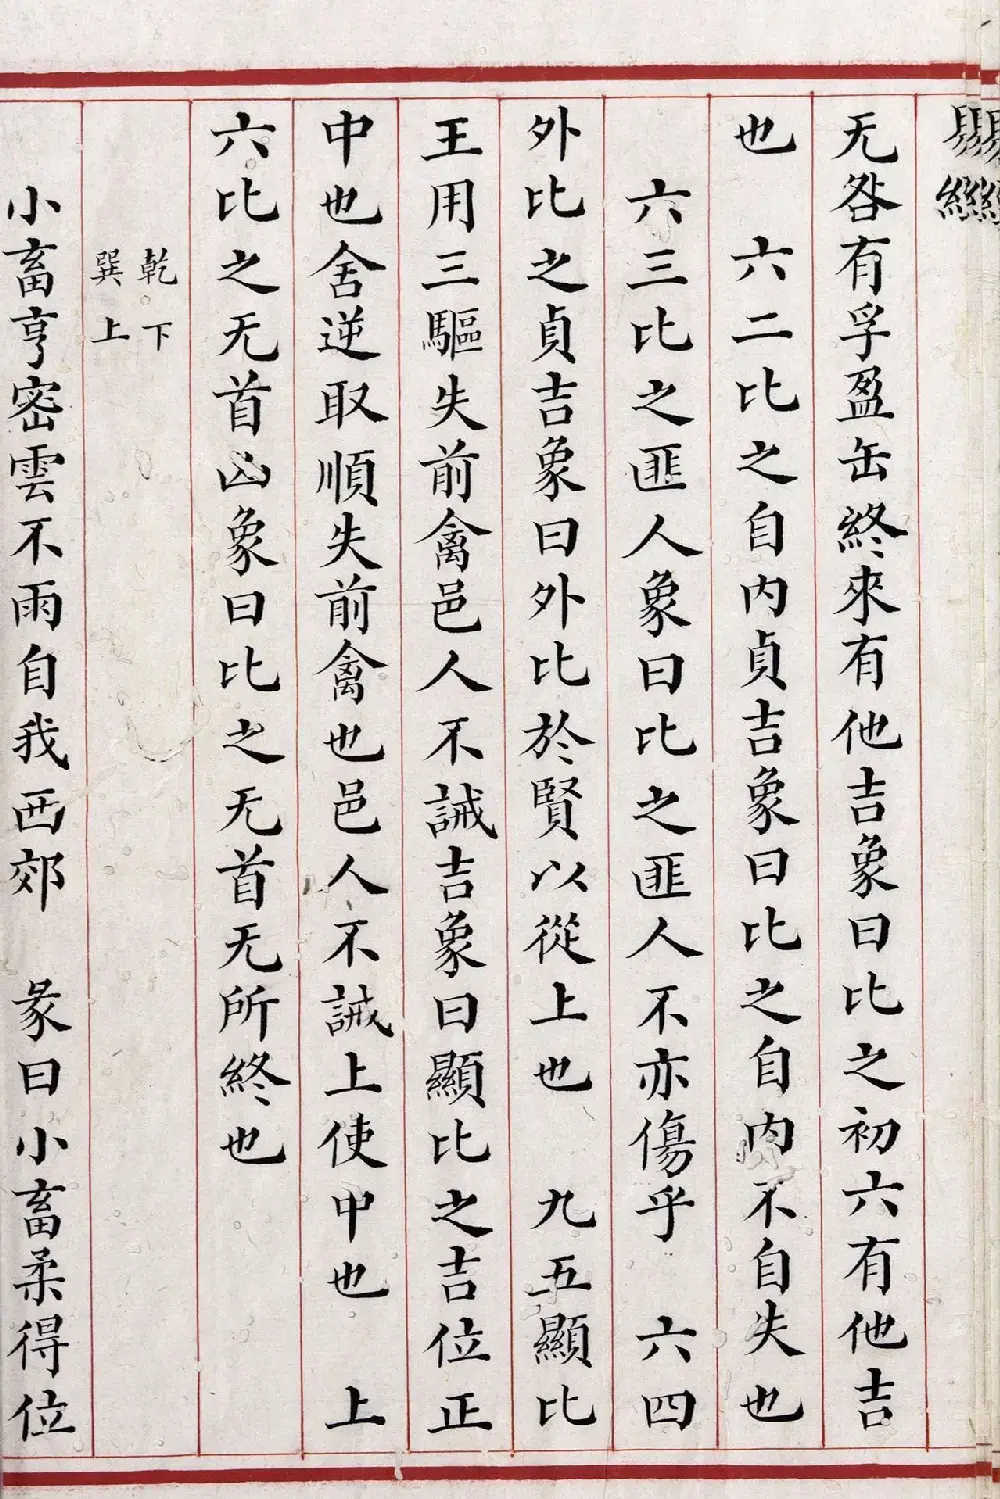 易經
无咎有孚盈缶終來有他吉象曰比之初六有他吉
也　六二比之自內貞吉象曰比之自內不自失也
六三比之匪人象曰比之匪人不亦傷乎　六四
外比之貞吉象曰外比於賢以從上也　九五顯比
王用三驅失前禽邑人不誡吉象曰顯比之吉位正
中也舍逆取順失前禽也邑人不誡上使中也　上
六比之无首凶象曰比之无首无所終也
乾下
巽上
小畜亨密雲不雨自我西郊　彖曰小畜柔得位